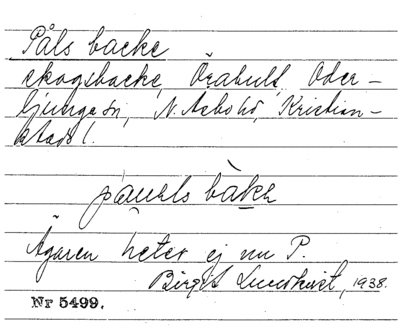 Påls backe
skogsbacke, Örahult, Oder-
ljunga sn, N. Åsbo hd, Kristian-
stads l.
påuls bàkɘ
Ägaren heter ej nu P.
Birgit Lundkvist, 1938.
Nr 5499.